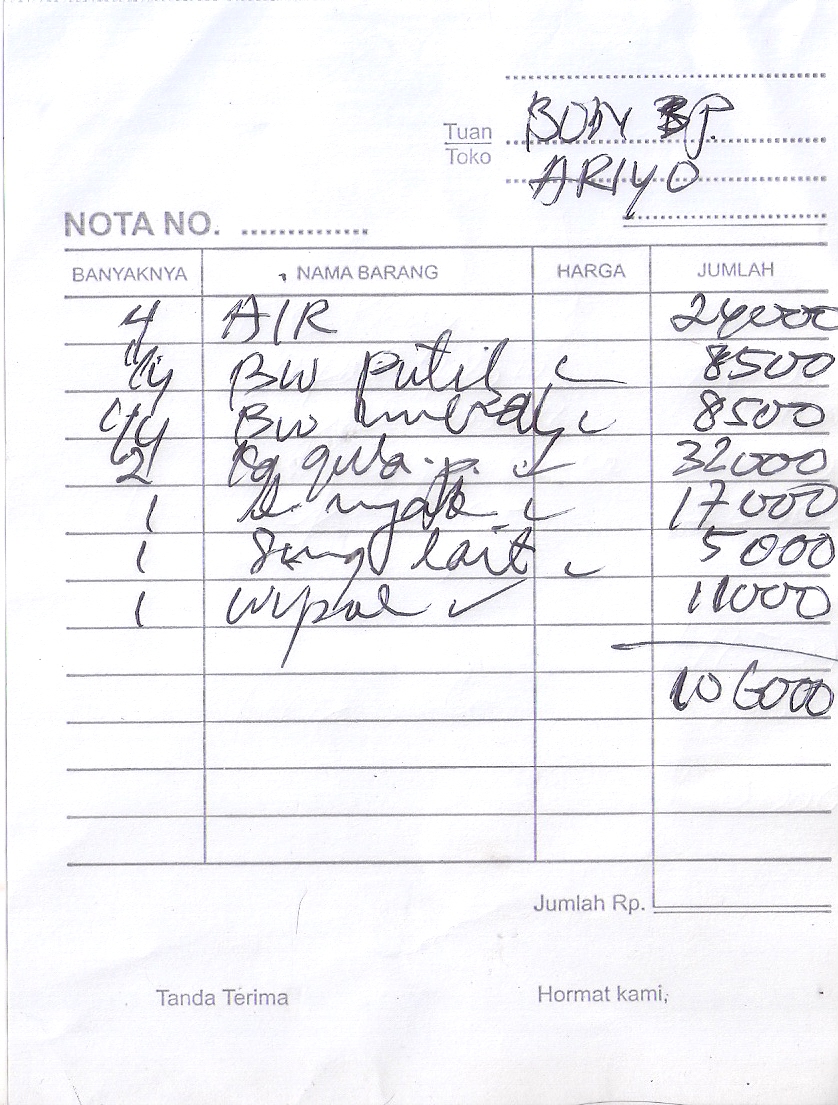 BON BP.
Tuan
Toko
ARIYO
NOTA NO. ....................
BANYAKNYA NAMA BARANG HARGA JUMLAH
4 AIR 24000
1/4 BW putih 8500
1/4 BW merah 8500
2 kg gula p. 32000
1 17000
1 lait 5000
1 wipol 11000
106000
Jumlah Rp.
Tanda Terima Hormat kami,